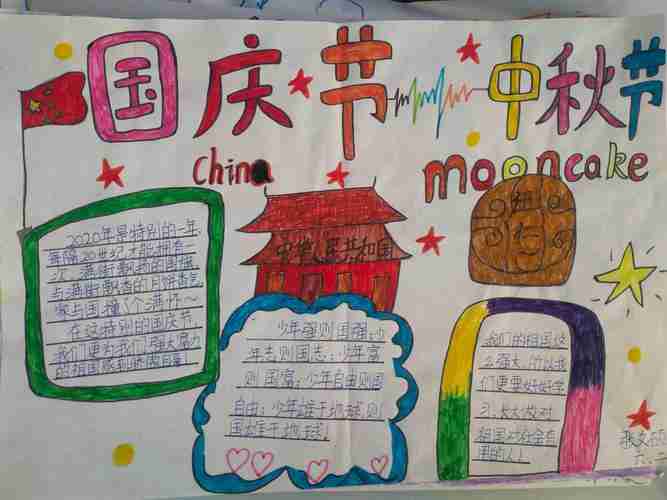 国庆节 中秋节
China mooncake
中华人民共和国
2020年是特别的一年,
每隔20世纪才能拥有一
次。满街飘扬的国旗
与满街飘香的月饼香气
家与国撞个满怀~
在这特别的国庆节,
我们更为我们强大魅力
的祖国感到
少年强则国强;少
年志则国志;少年富
则国富;少年自由则国
自由;少年雄于地球则
国雄于地球。
我们的祖国这
么强大,所以我
们更要好好学
习,长大做对
祖国对社会有
用的人!
六.二